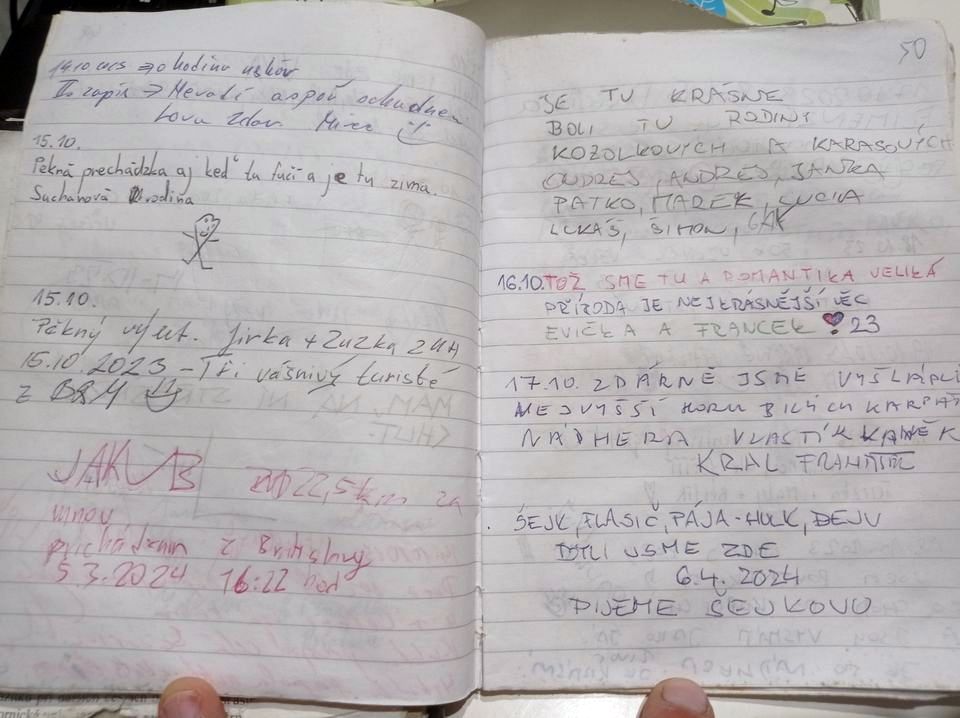 14.10. => o hodinu neskôr
II. zápis => Nevadí aspoň
Lovu Zdar Mirec
15.10.
Pěkná prechádzka aj keď tu fučí a je tu zima.
Suchánová rodina
15.10.
Pěkný výlet. Jirka + Zuzka ZUH
15.10.2023 - Tři vášnivý turisté
z BRM
JAKUB 22,5 km za
mnou
prichádzam z Bratislavy
5 3.2024 16:22 hod
50
JE TU KRÁSNE
BOLI TU RODINY
KOZOLKOVÝCH A KARASOVÝCH
ONDREJ, ANDREJ, JANKA
PATKO, MAREK, LUCIA
LUKÁŠ, ŠIMON,
16.10. TOŽ SME TU A ROMANTIKA VELIKÁ
PŘÍRODA JE NEJKRÁSNĚJŠÍ VĚC
EVIČKA A FRANCEK ❤ 23
17.10. ZDÁRNĚ JSME VYŠLÁPLI
NEJVYŠŠÍ HORU BÍLÝCH KARPAT
NÁDHERA VLASTÍK
KRÁL FRANTIŠEK
ŠEJK, FLASIČ, PÁJA-HULK, DEJV
BYLI JSME ZDE
6.4. 2024
PIJEME ŠEJKOVU